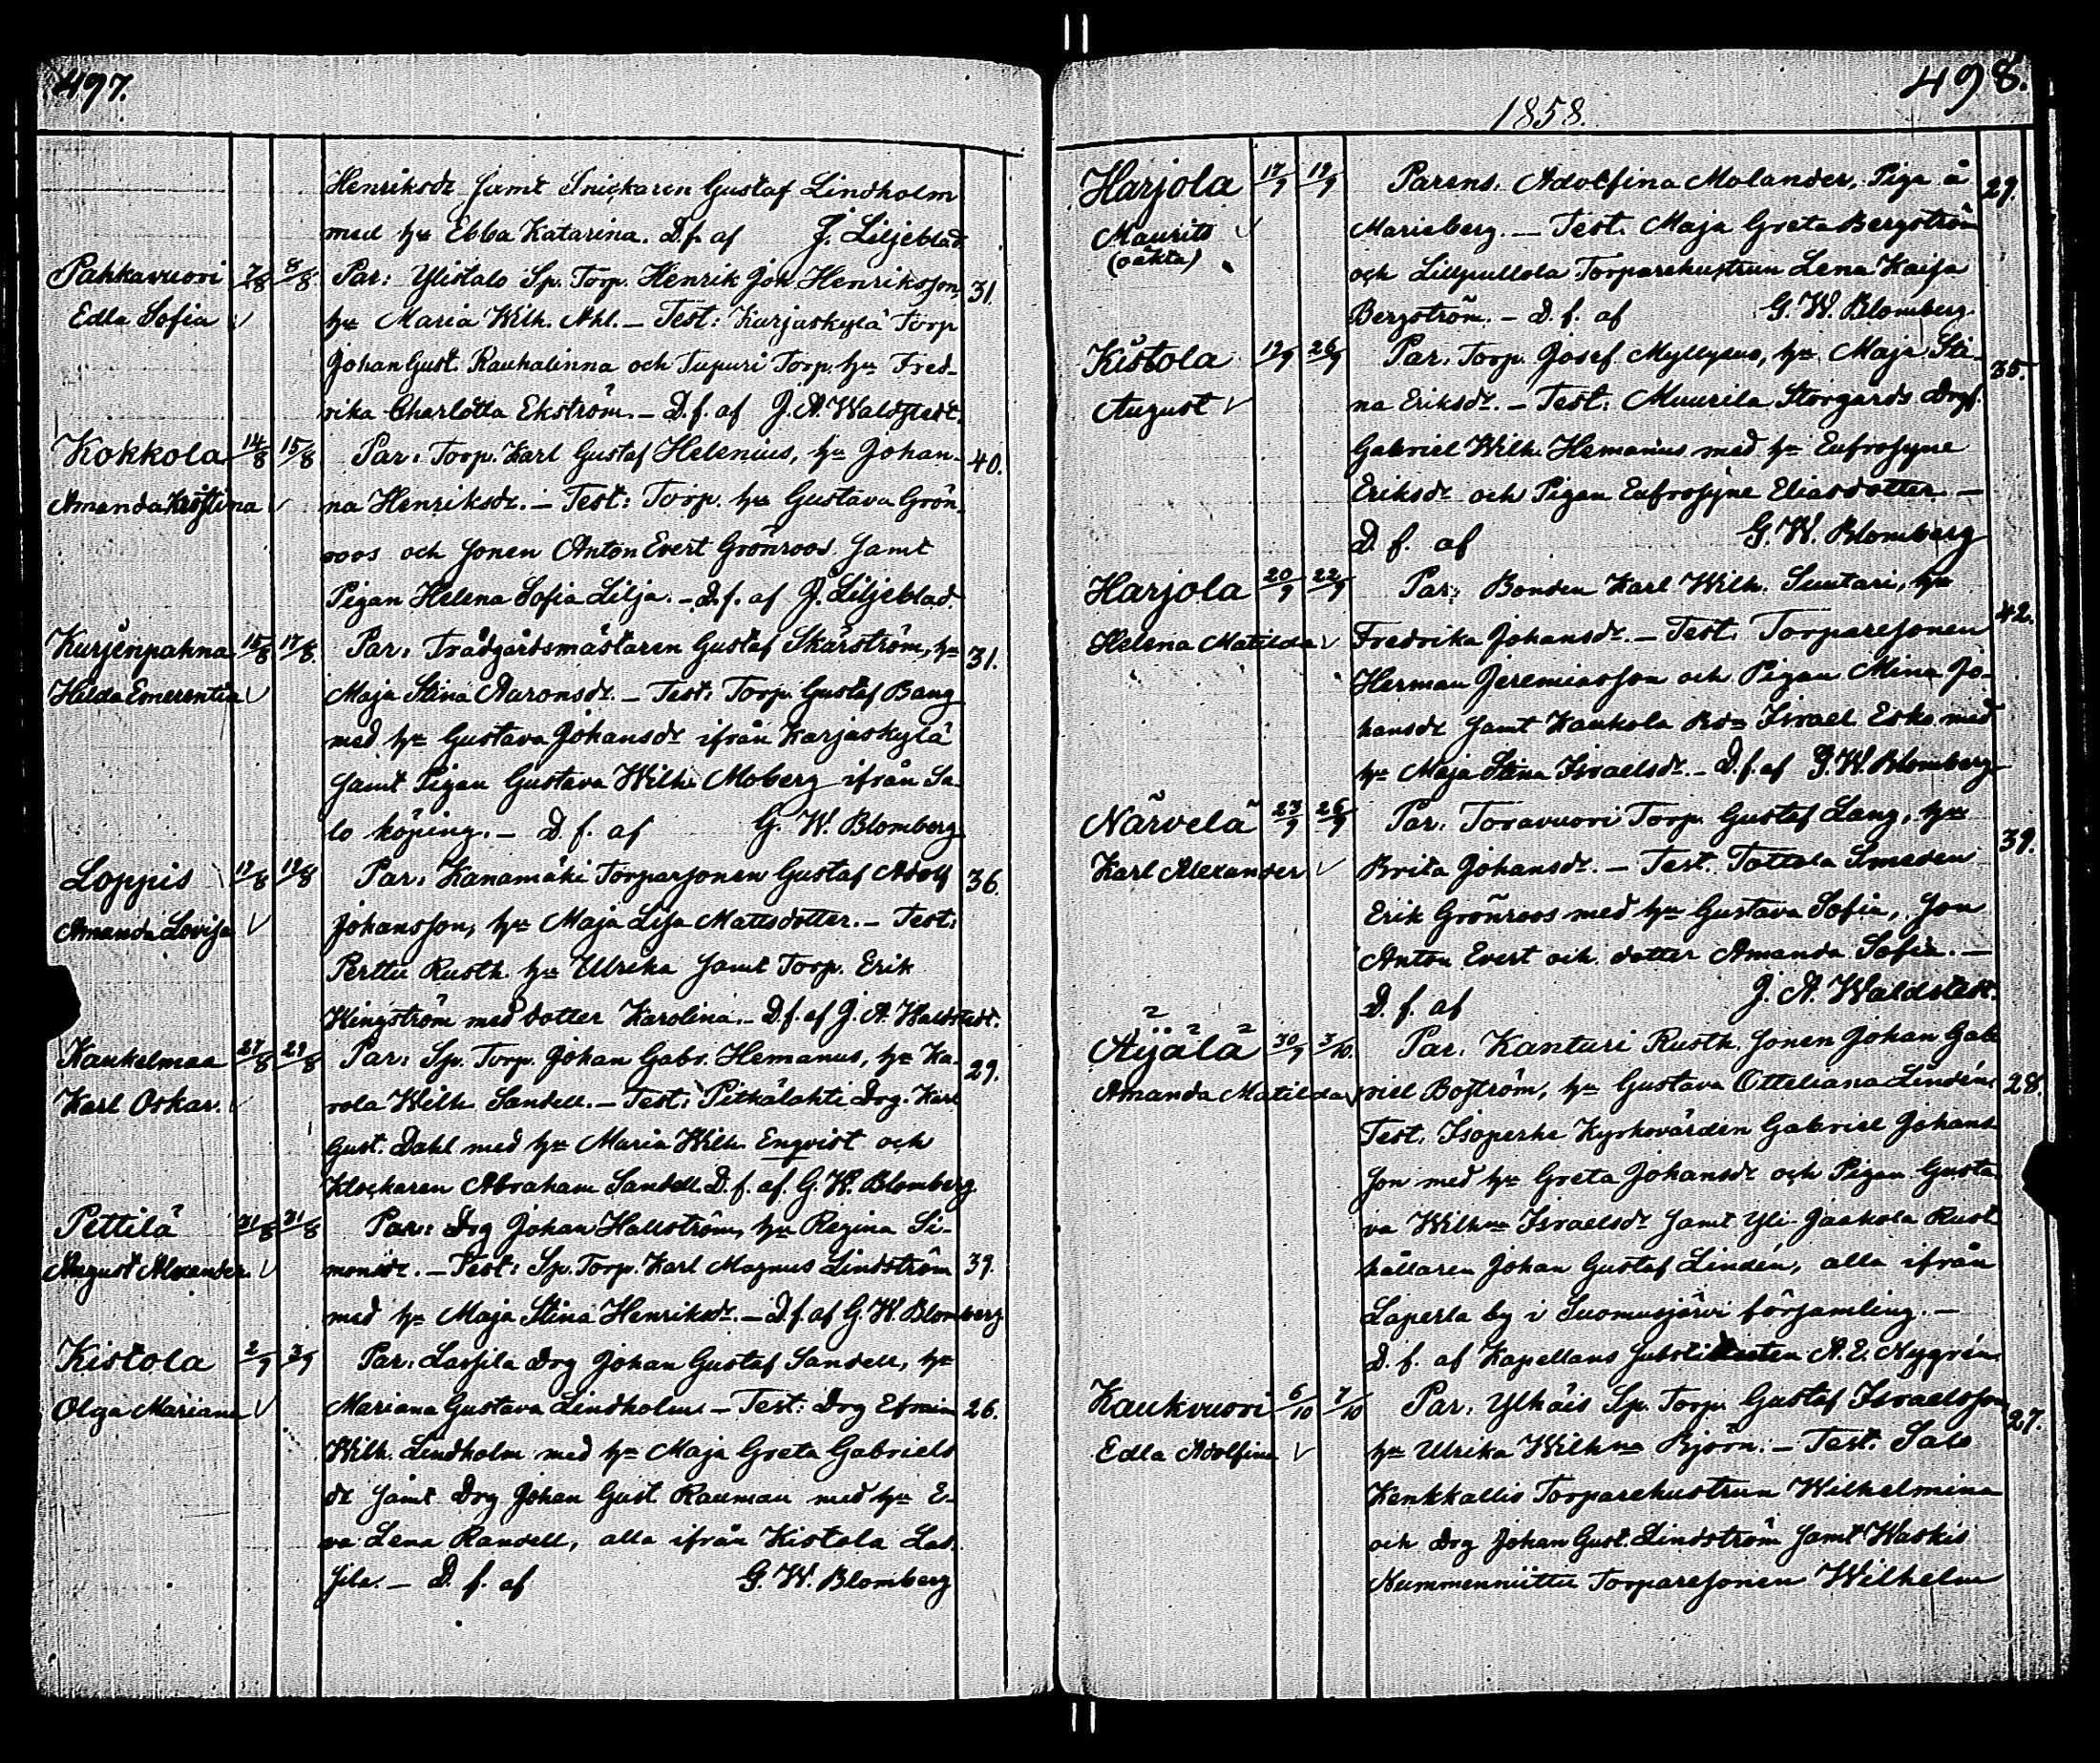 497.
Henriksdr samt Snickaren Gustaf Lindholm
med hu Ebba Katarina. D.f. af J. Liljeblad.
Pahkavuori 7/8 8/8. Par: Ylistalo Sp. Torp. Henrik Joh. Henriksson, 31.
Edla Sofia √ hu Maria Wilh. Ahl. – Test: Kurjaskylä Torp
Johan Gust. Rauhalinna och Tupuri Torp. hu Fred-
rika Charlotta Ekström. – D.f. af J. A. Waldstedt.
Kokkola 14/8 15/8 Par: Torp. Karl Gustaf Helenius, hu Johan- 40.
Amanda Kristina √ na Henriksdr. – Test: Torp. hu Gustava Grön-
roos och sonen Anton Evert Grönroos samt
Pigan Helena Sofia Lilja. – D.f. af J. Liljeblad.
Kurjenpahna 15/8 17/8. Par: Trädgårdsmästaren Gustaf Skärström, hu 31.
Hilda Emerentia √ Maja Stina Aaronsdr. – Test: Torp. Gustaf Bang
med hu Gustava Johansdr ifrån Karjaskylä
samt Pigan Gustava Wilh. Moberg ifrån Sa-
lo köping. – D. f. af G. W. Blomberg
Loppis 19/8 19/8 Par: Kanamäki Torparsonen Gustaf Adolf 36.
Amanda Lovisa √ Johansson, hu Maja Lisa Mattsdotter. – Test:
Perttu Rusth. hu Ulrika samt Torp. Erik
Kingström med dotter Karolina. – D.f. af J. A. Waldstedt.
Kaukelmaa 27/8 29/8 Par: Sp. Torp. Johan Gabr. Hemanus, hu Ka- 29.
Karl Oskar. √ rola Wilh. Sandell. – Test: Pitkälahti Drg. Karl
Gust. Dahl med hu Maria Wilh. Enqvist och
Klockaren Abraham Sandell. D. f. af. G. W. Blomberg.
Pettilä 31/8 31/8 Par: Drg Johan Hallström, hu Regina Si-
August Alexander. √ monsdr. – Test: Sp. Torp. Karl Magnus Lindström 39.
med hu Maja Stina Henriksdr. – D.f. af G. W. Blomberg
Kistola 2/9 3/9 Par: Lassila Drg Johan Gustaf Sandell, hu
Olga Mariana √ Mariana Gustava Lindholm. – Test: Drg Efraim 26.
Wilh. Lindholm med hu Maja Greta Gabriels
dr samt Drg Johan Gust. Rauman med hu E-
va Lena Randell, alla ifrån Kistola Las-
sila. – D. f. af G. W. Blomberg
498.
1858.
Harjola 17/9 19/9 Parens. Adolfina Molander, Piga å 29.
Maurits √ Marieberg. – Test. Maja Greta Bergström
(oäkta) och Lillpullola Torparehustrun Lena Kaisa
Bergström. – D. f. af G. W. Blomberg.
Kistola 19/9 26/9 Par: Torp. Josef Myllysuo, hu Maja Sti- 35.
August √ na Eriksdr. – Test: Muurila Storgårds Drgs.
Gabriel Wilh. Hemanus med hu Eufrosyne
Eriksdr och Pigan Eufrosyne Eliasdotter. –
D. f. af G. W. Blomberg
Harjola 20/9 22/9 Par: Bonden Karl Wilh. Suutari, hu 42.
Helena Matilda √ Fredrika Johansdr. – Test. Torparesonen
Herman Jeremiasson och Pigan Mina Jo-
hansdr samt Kaukola Bdn Israel Esko med
hu Maja Stina Israelsdr. – D.f. af G. W. Blomberg
Närvelä 23/9 26/9 Par. Toravuori Torp. Gustaf Lang, hu 39.
Karl Alexander √ Brita Johansdr. – Test. Tottola Smeden
Erik Grönroos med hu Gustava Sofia, son
Anton Evert och dotter Amanda Sofia. –
D. f. af J. A. Waldstedt.
Äijälä 30/9 3/10. Par. Kanturi Rusth. sonen Johan Gab-
Amanda Matilda √ riel Boström, hu Gustava Otteliana Lindén. 28.
Test. Isoperhe Kyrkovärden Gabriel Johans
son med hu Greta Johansdr och Pigan Gusta-
va Wilhna Israelsdr samt Yli-Jaakola Rust-
hållaren Johan Gustaf Lindén, alla ifrån
Laperla by i Suomusjärvi församling. –
D. f. af Kapellans substituten A. E. Nygrén.
Kaukvuori 6/10 7/10 Par. Ylhäis Sp. Torp. Gustaf Israelsson 27.
Edla Adolfina √ hu Ulrika Wilhna Björn. – Test. Salo
Kenkkallis Torparehustrun Wilhelmina
och Drg Johan Gust. Lindström samt Kaskis
Nummenniittu Torparesonen Wilhelm